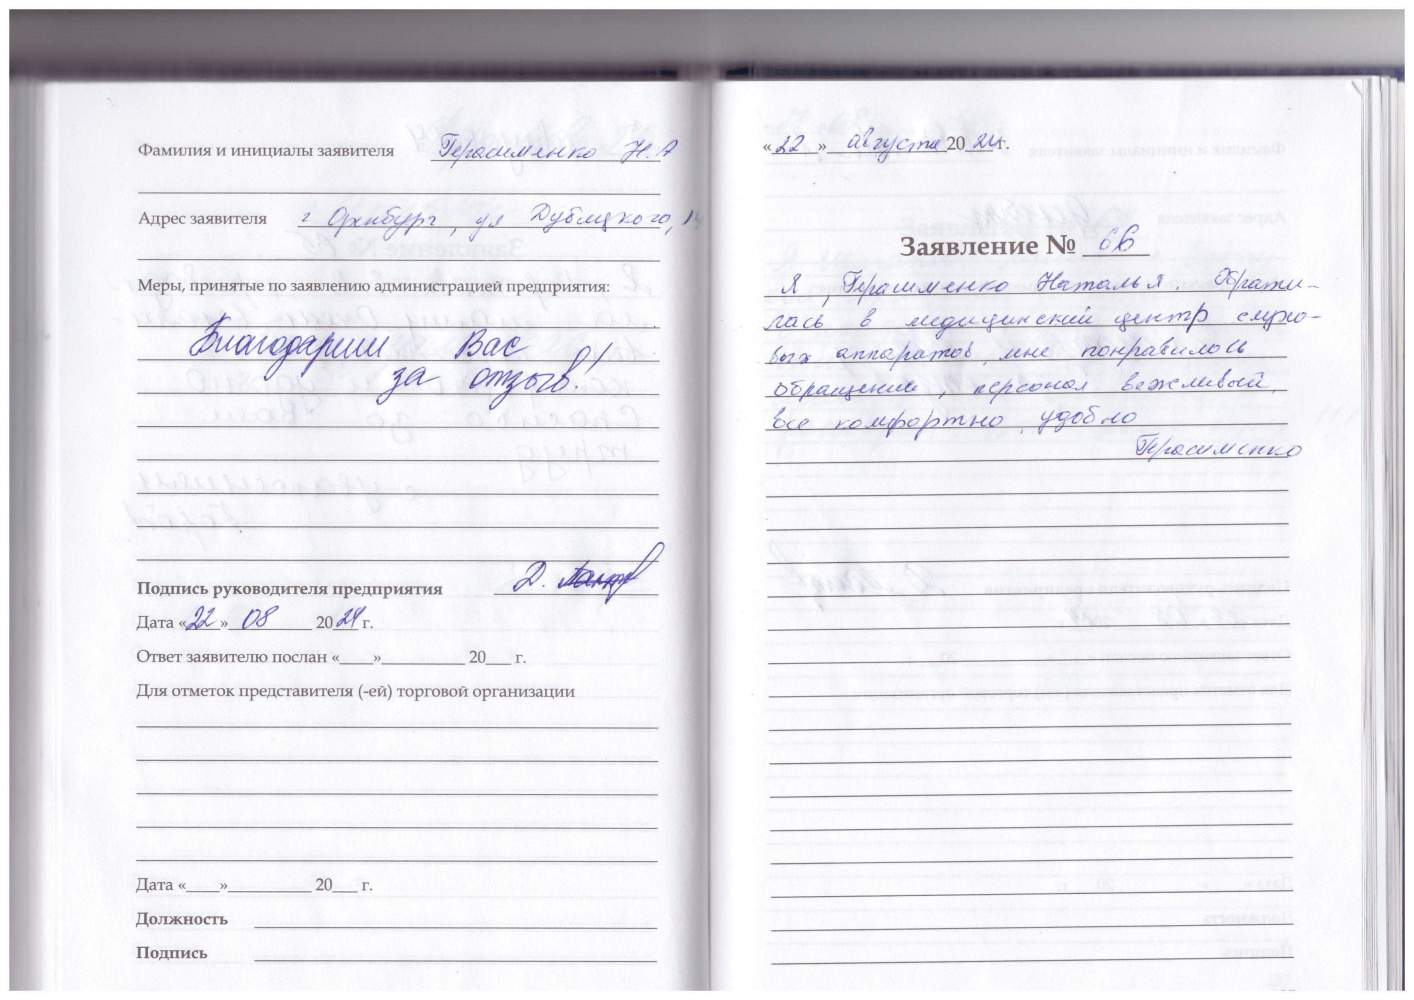 Фамилия и инициалы заявителя Герасименко Н.А
Адрес заявителя г Оренбург, ул Дубицкого,
Меры, принятые по заявлению администрацией предприятия:
Благодарим Вас
за отзыв!
Подпись руководителя предприятия Д.
Дата «22» 08 2024 г.
Ответ заявителю послан «____»__________ 20___ г.
Для отметок представителя (-ей) торговой организации
Дата «____»__________ 20___ г.
Должность
Подпись
«22» августа 2024 г.
Заявление №
Я, Герасименко Наталья. Обрати-
лась в медицинский центр слухо-
вых аппаратов, мне понравилось
обращение, персонал вежливый,
все комфортно, удобно
Герасименко